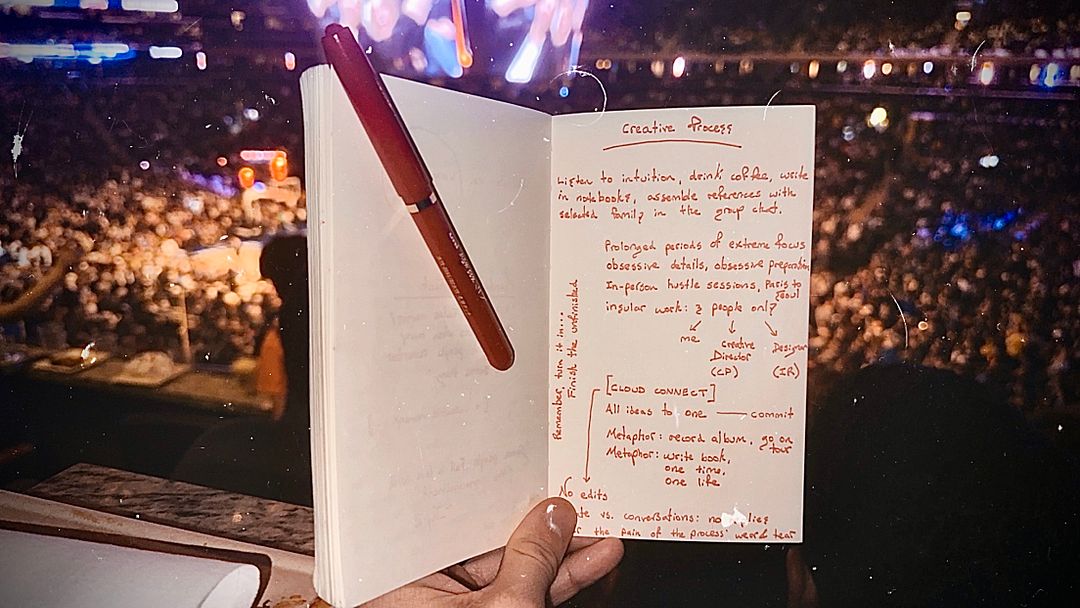 Creative Process
Listen to intuition, drink coffee, write
in notebooks, assemble references with
selected family in the group chat.
Prolonged periods of extreme focus
obsessive details, obsessive preparation
In-person hustle sessions, Paris to
Seoul
insular work: 3 people only
me Creative Designer
Director
(CP) (IR)
[CLOUD CONNECT]
All ideas to one — commit
Metaphor: record album, go on
tour
Metaphor: write book,
one time,
one life
No edits
vs. conversations:
the pain of the process tear
Remember, turn it in...
Finish the unfinished